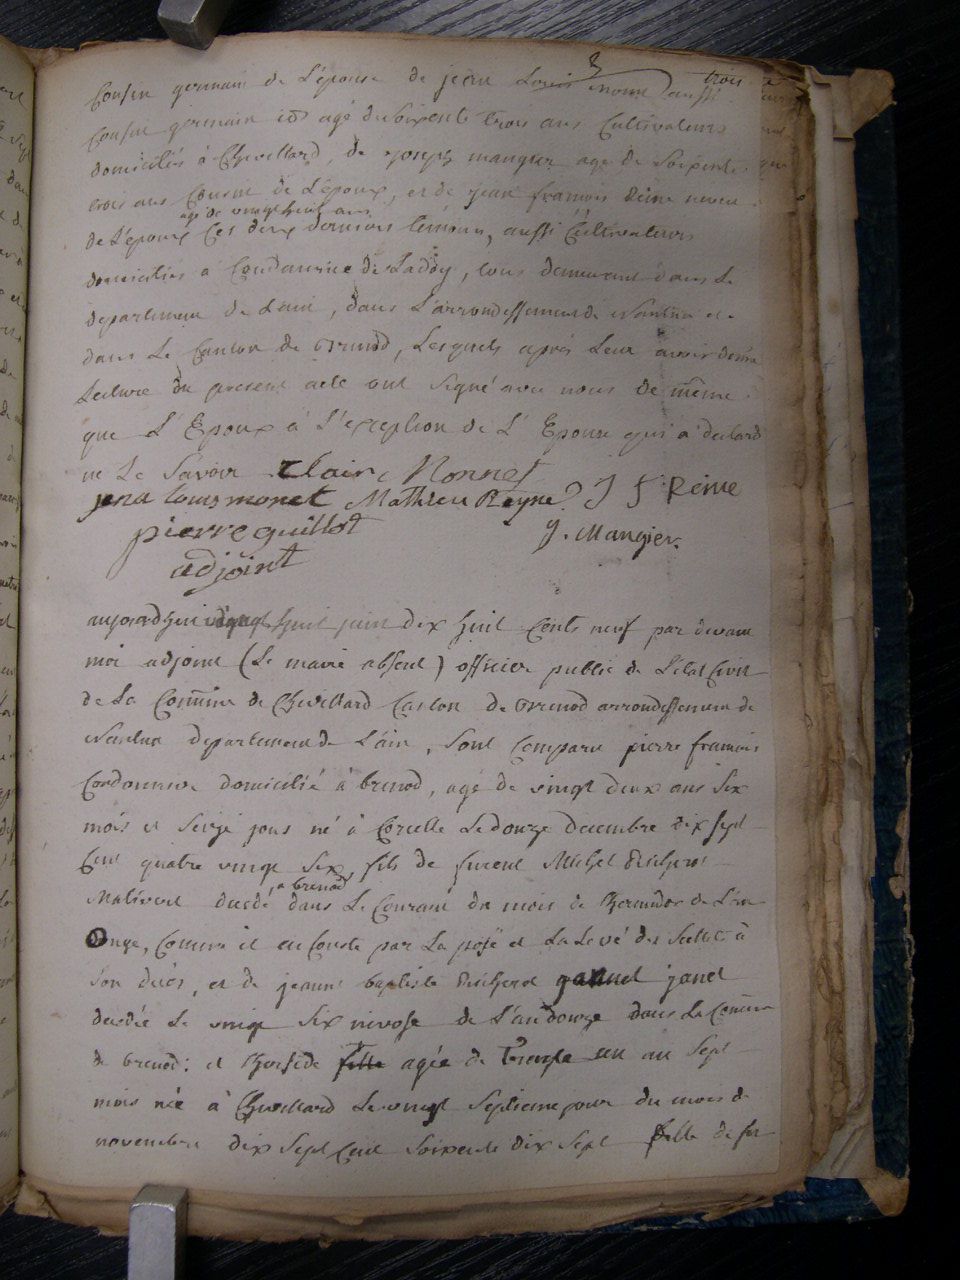 Cousin germain de L'épouse de jean Louis monet aussi trois
Cousin germain id agé de soixente trois ans Cultivateurs
domiciliés à Chevillard, de joseph mangier agé de soixente
trois ans Cousin de L'époux, et de jean francois Reine neveu
agé de vingt huit ans
de L'époux Ces deux derniers témoins, aussi Cultivateurs
domiciliés a Condamine de Laddoy, tous demeurant dans Le
departement de Lain, dans L'arrondissement de Nantua et
dans Le Canton de Brenod, Lesquels après Leur avoir donné
Lecture du present acte ont signé avec nous de même
que L'Epoux à L'exception de L'Epouse qui a déclaré
ne Le Savoir Claire Monnet
jena Louis monet Mathieu Reyne J F Reine
pierre guillot J. Mangier.
adjoint
aujourdhui vingt huit juin dix huit Cents neuf par devant
moi adjoint (Le maire absent) officier public de L'état Civil
de La Commune de Chevillard Canton de Brenod arrondissement de
Nantua departement de L'ain, sont Comparu pierre francois
Cordonnier domicilié à brenod, agé de vingt deux ans six
mois et seize jours né à Corcelle Le douze decembre dix sept
Cent quatre vingt six, fils de furent Michel
à brenod
decédé dans Le Courant du mois de thermidor de L'an
Onze, Comme il en Conste par La posé et La Levé des Scellés à
son décès, et de jeanne baptiste janet
decédée Le vingt six nivose de L'an douze dans La Commune
de brenod: et agée de Trente un an sept
mois née à Chevillard Le vingt septieme jour du mois de
novembre dix sept Cent soixante dix sept fille de fu